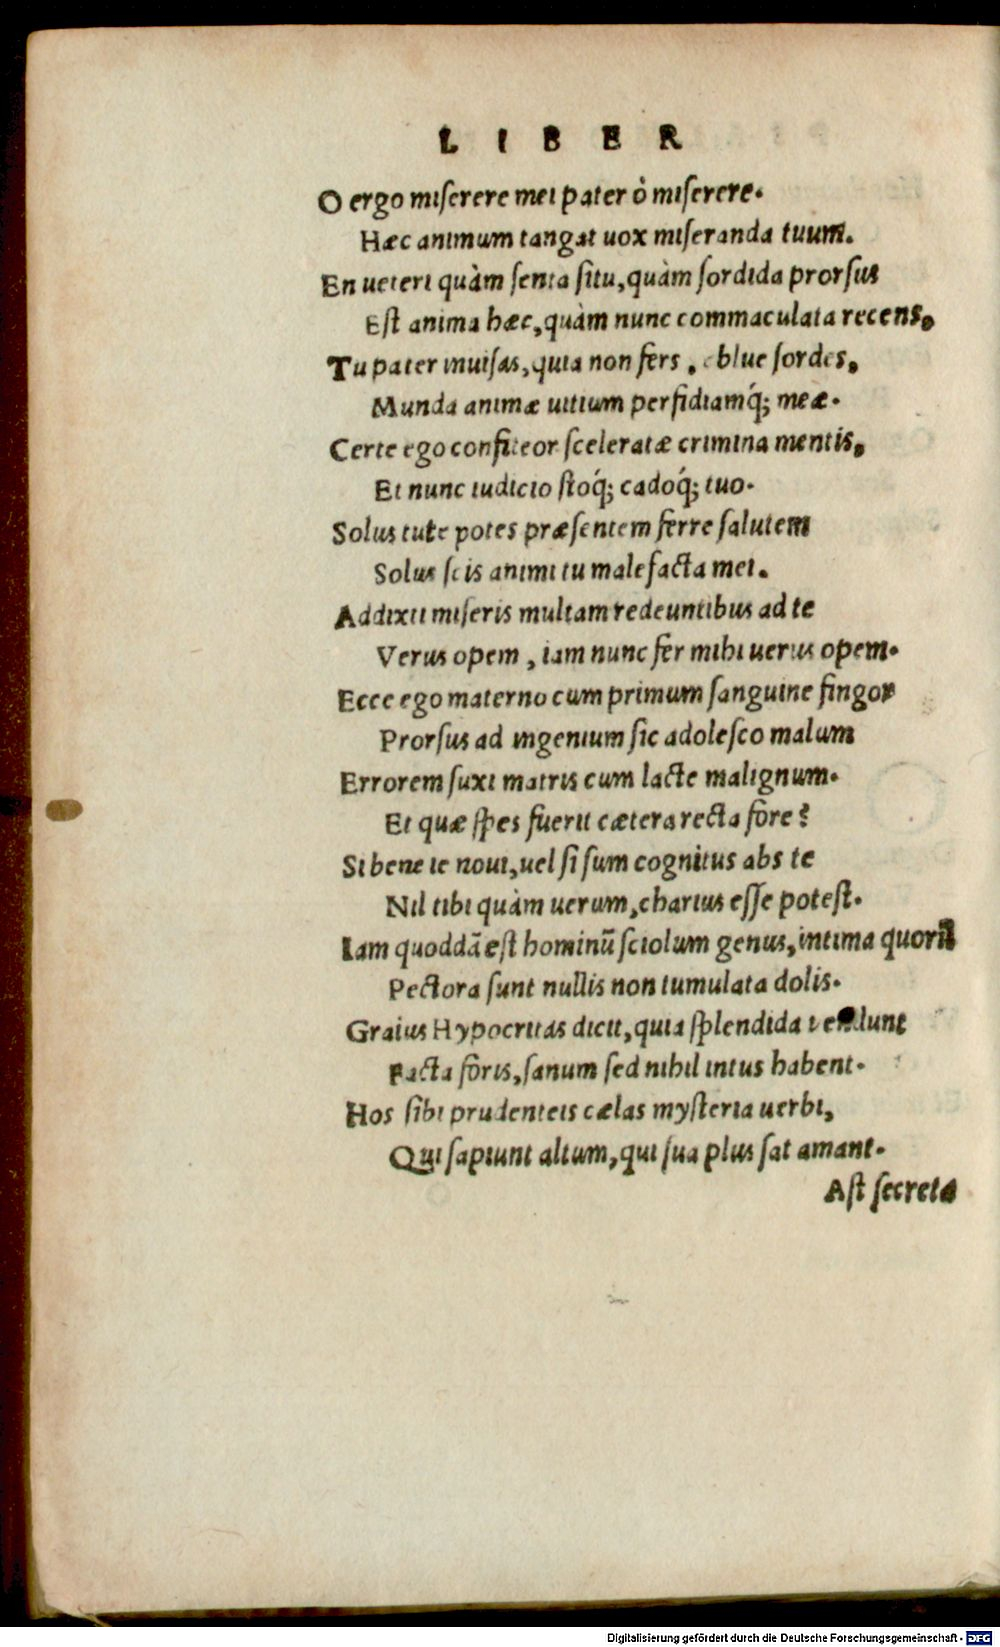 LIBER
O ergo miserere mei pater ò miserere.
Hæc animum tangat uox miseranda tuum.
En ueteri quàm senta situ, quàm sordida prorsus
Est anima hæc, quàm nunc commaculata recens.
Tu pater inuisas, quia non fers, eblue sordes,
Munda animæ uitium perfidiamq́; meæ.
Certe ego confiteor sceleratæ crimina mentis,
Et nunc iudicio stoq́; cadoq́; tuo.
Solus tute potes præsentem ferre salutem
Solus scis animi tu malefacta mei.
Addixti miseris multam redeuntibus ad te
Verus opem, iam nunc fer mihi uerus opem.
Ecce ego materno cum primum sanguine fingor
Prorsus ad ingenium sic adolesco malum
Errorem suxi matris cum lacte malignum.
Et quæ spes fuerit cætera recta fore?
Si bene te noui, uel si sum cognitus abs te
Nil tibi quàm uerum, charius esse potest.
Iam quoddã est hominũ sciolum genus, intima quorũ
Pectora sunt nullis non tumulata dolis.
Graius Hypocritas dicit, quia splendida uendunt
Facta foris, sanum sed nihil intus habent.
Hos sibi prudenteis cælas mysteria uerbi,
Qui sapiunt altum, qui sua plus sat amant.
Ast secreta
Digitalisierung gefördert durch die Deutsche Forschungsgemeinschaft - DFG